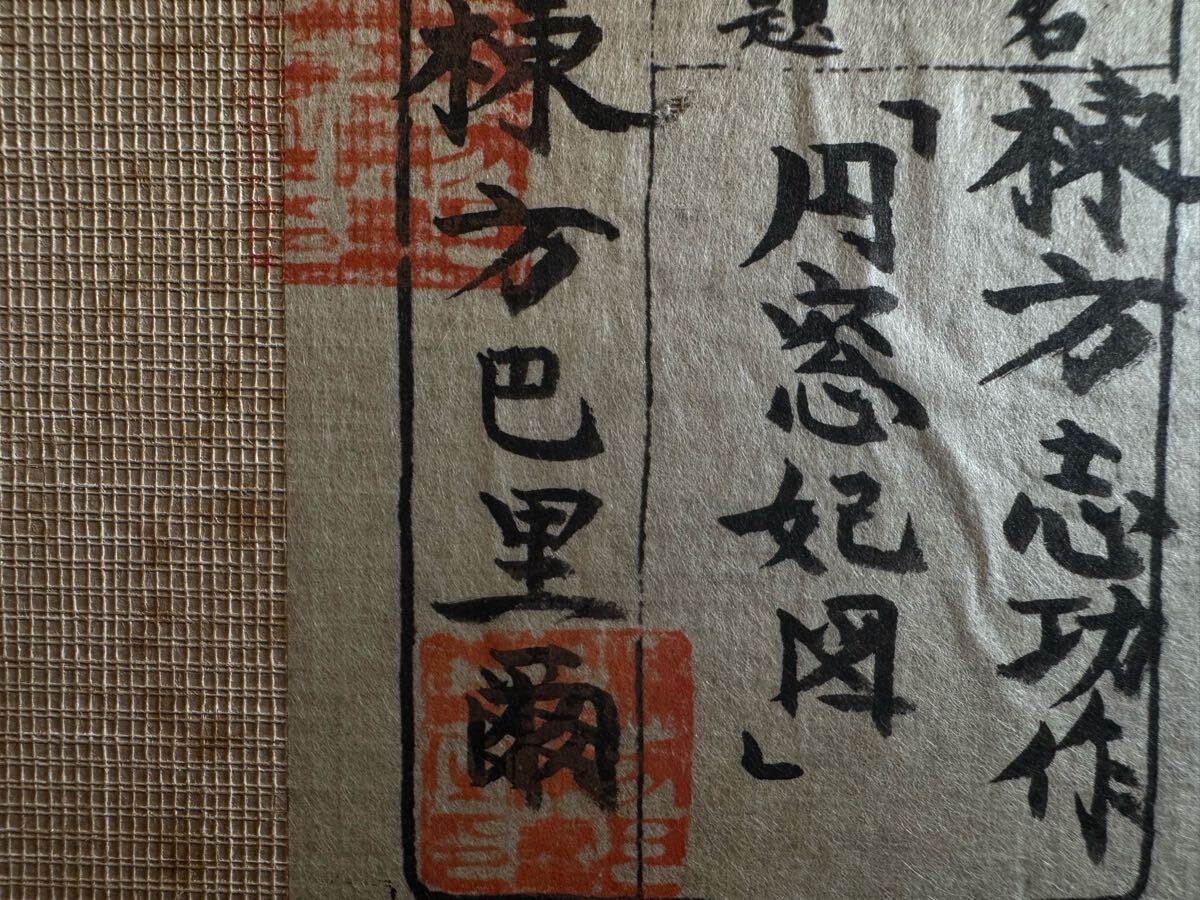 名
棟方志功作
題
「円窓妃図」
棟方巴里爾